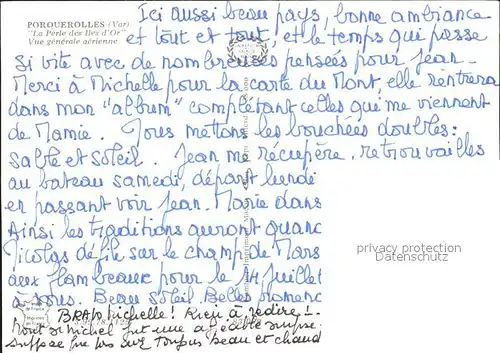 PORQUEROLLES (Var)
"La Perle des Iles d'Or"
Vue générale aérienne
Ici aussi beau pays, bonne ambiance
et tout et tout et le temps qui passe
si vite avec de nombreuses pensées pour Jean.
Merci à Michelle pour la carte du Mont, elle rentrera
dans mon "album" complétant celles qui me viennent
de Mamie. Nous mettons les bouchées doubles:
sable et soleil. Jean me récupère, retrouvailles
au bateau samedi, départ lundi
en passant voir Jean. Marie dans
Ainsi les traditions auront quand
Nicolas défile sur le champ de Mars
aux flambeaux pour le 14 juillet
à vous. Beau soleil. Belles
BRAVO Michelle! Rien à redire!
Mont St Michel fut une agréable
suppose que vous avez toujours beau et chaud
privacy protection
Datenschutz